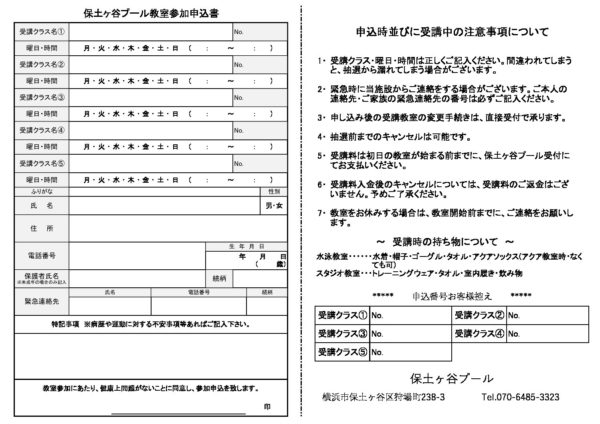 保土ヶ谷プール教室参加申込書
受講クラス名① No.
曜日・時間 月・火・水・木・金・土・日 （ ： ～ ： ）
受講クラス名② No.
曜日・時間 月・火・水・木・金・土・日 （ ： ～ ： ）
受講クラス名③ No.
曜日・時間 月・火・水・木・金・土・日 （ ： ～ ： ）
受講クラス名④ No.
曜日・時間 月・火・水・木・金・土・日 （ ： ～ ： ）
受講クラス名⑤ No.
曜日・時間 月・火・水・木・金・土・日 （ ： ～ ： ）
ふりがな 性別
氏 名 男・女
住 所
電話番号 生 年 月 日
年 月 日
（ 歳）
保護者氏名 続柄
※未成年の場合のみ記入
緊急連絡先 氏名 電話番号 続柄
特記事項 ※病歴や運動に対する不安事項等あればご記入下さい。
教室参加にあたり、健康上問題がないことに同意し、参加申込を致します。
印
申込時並びに受講中の注意事項について
1・ 受講クラス・曜日・時間は正しくご記入ください。間違われてしまう
と、抽選から漏れてしまう場合がございます。
2・ 緊急時に当施設からご連絡をする場合がございます。ご本人の
連絡先・ご家族の緊急連絡先の番号は必ずご記入ください。
3・ 申し込み後の受講教室の変更手続きは、直接受付で承ります。
4・ 抽選前までのキャンセルは可能です。
5・ 受講料は初日の教室が始まる前までに、保土ヶ谷プール受付に
てお支払いください。
6・ 受講料入金後のキャンセルについては、受講料のご返金はござ
いません。予めご了承ください。
7・ 教室をお休みする場合は、教室開始前までに、ご連絡をお願いし
ます。
～ 受講時の持ち物について ～
水泳教室・・・・・・水着・帽子・ゴーグル・タオル・アクアソックス（アクア教室時・なく
ても可）
スタジオ教室・・・トレーニングウェア・タオル・室内履き・飲み物
***** 申込番号お客様控え *****
受講クラス① No. 受講クラス② No.
受講クラス③ No. 受講クラス④ No.
受講クラス⑤ No.
保土ヶ谷プール
横浜市保土ヶ谷区狩場町238-3 Tel.070-6485-3323